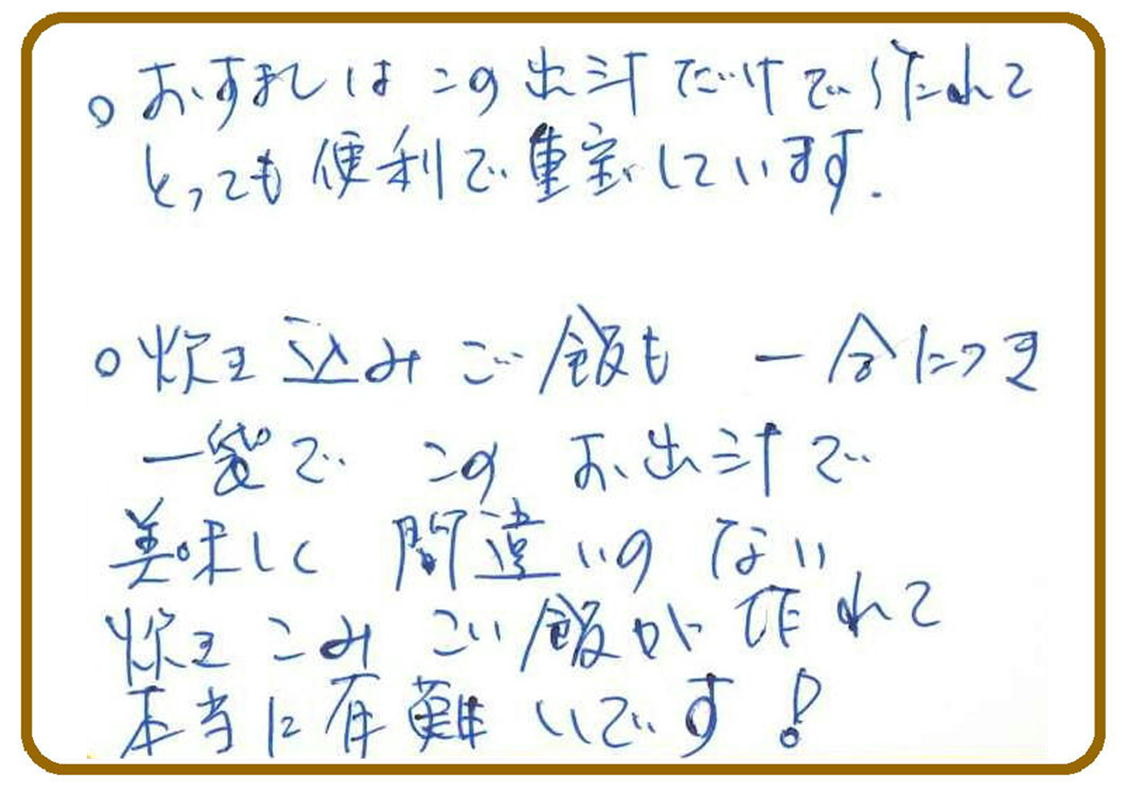 ○ おすましはこの出汁だけでいただれて
とっても便利で重宝しています.
○ 炊き込みご飯も 一合につき
一袋で このお出汁で
美味しく 間違いのない
炊きこみごい飯が 作れて
本当に有難いです!